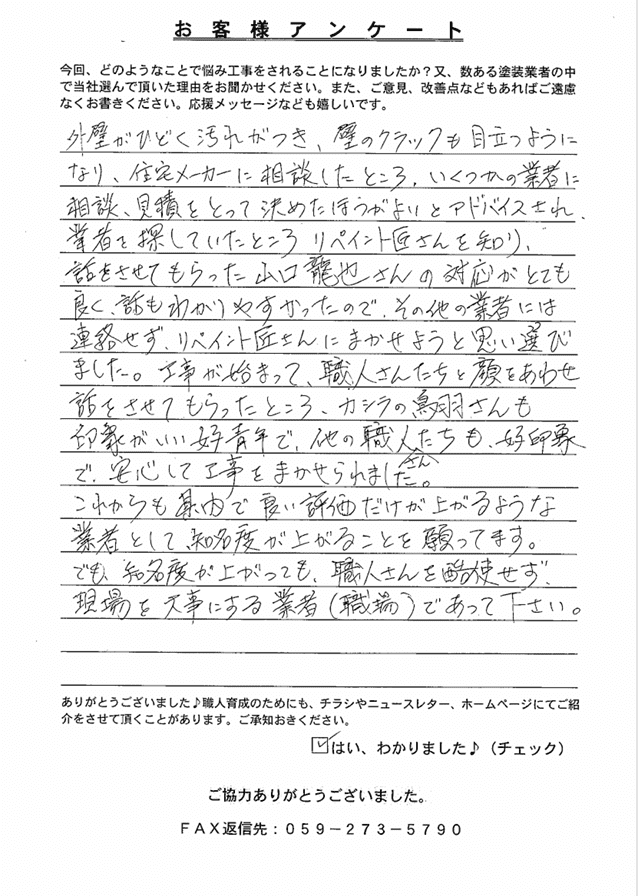 お客様アンケート
今回、どのようなことで悩み工事をされることになりましたか？又、数ある塗装業者の中
で当社選んで頂いた理由をお聞かせください。また、ご意見、改善点などもあればご遠慮
なくお書きください。応援メッセージなども嬉しいです。
外壁がひどく汚れがつき、壁のクラックも目立つように
なり、住宅メーカーに相談したところ、いくつかの業者に
相談、見積をとって決めたほうがよいとアドバイスされ、
業者を探していたところリペイント匠さんを知り、
話をさせてもらった山口龍也さんの対応がとても
良く、話もわかりやすかったので、その他の業者には
連絡せず、リペイント匠さんにまかせようと思い選び
ました。工事が始まって、職人さんたちと顔をあわせ
話をさせてもらったところ、カシラの鳥羽さんも
印象がいい好青年で、他の職人さんたちも、好印象
で、安心して工事をまかせられました。
これからも県内で良い評価だけが上がるような
業者として知名度が上がることを願ってます。
でも、知名度が上がっても、職人さんを酷使せず、
現場を大事にする業者（職場）であって下さい。
ありがとうございました♪職人育成のためにも、チラシやニュースレター、ホームページにてご紹
介をさせて頂くことがあります。ご承知おきください。
☑はい、わかりました♪（チェック）
ご協力ありがとうございました。
ＦＡＸ返信先：０５９－２７３－５７９０